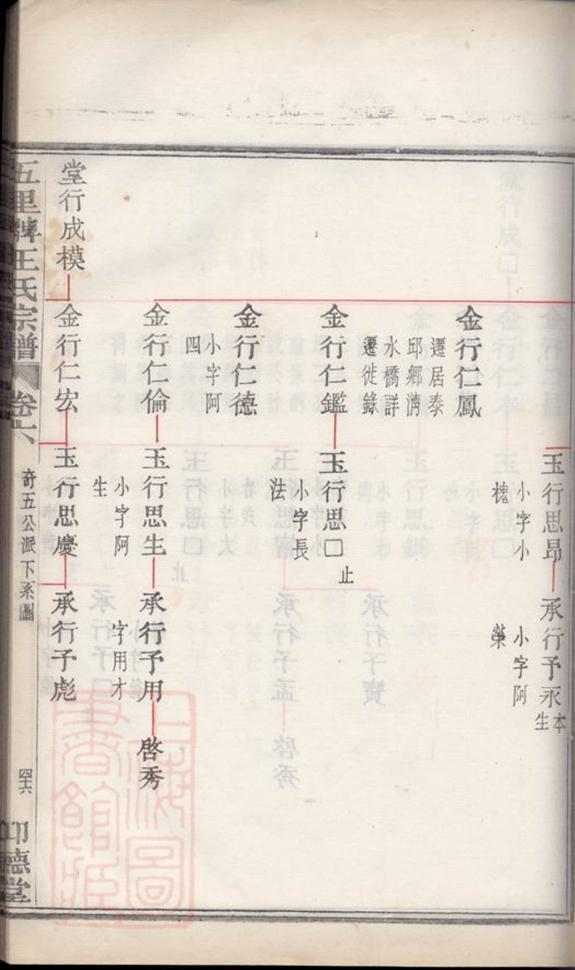 玉行思昂
小字小
桂
承行予永
本生
小字阿
藥
金行仁鳳
遷居泰
邱鄉濟
水橋詳
遷徙錄
金行仁鑑
玉行思□
止
小字長
法
金行仁德
小字阿
四
金行仁倫
玉行思生
小字阿
生
承行予用
字用才
啓秀
堂行成模
金行仁宏
玉行思慶
承行予彪
五里牌王氏宗譜
卷六
奇五公派下系圖
四六
印德堂
上海圖書館藏